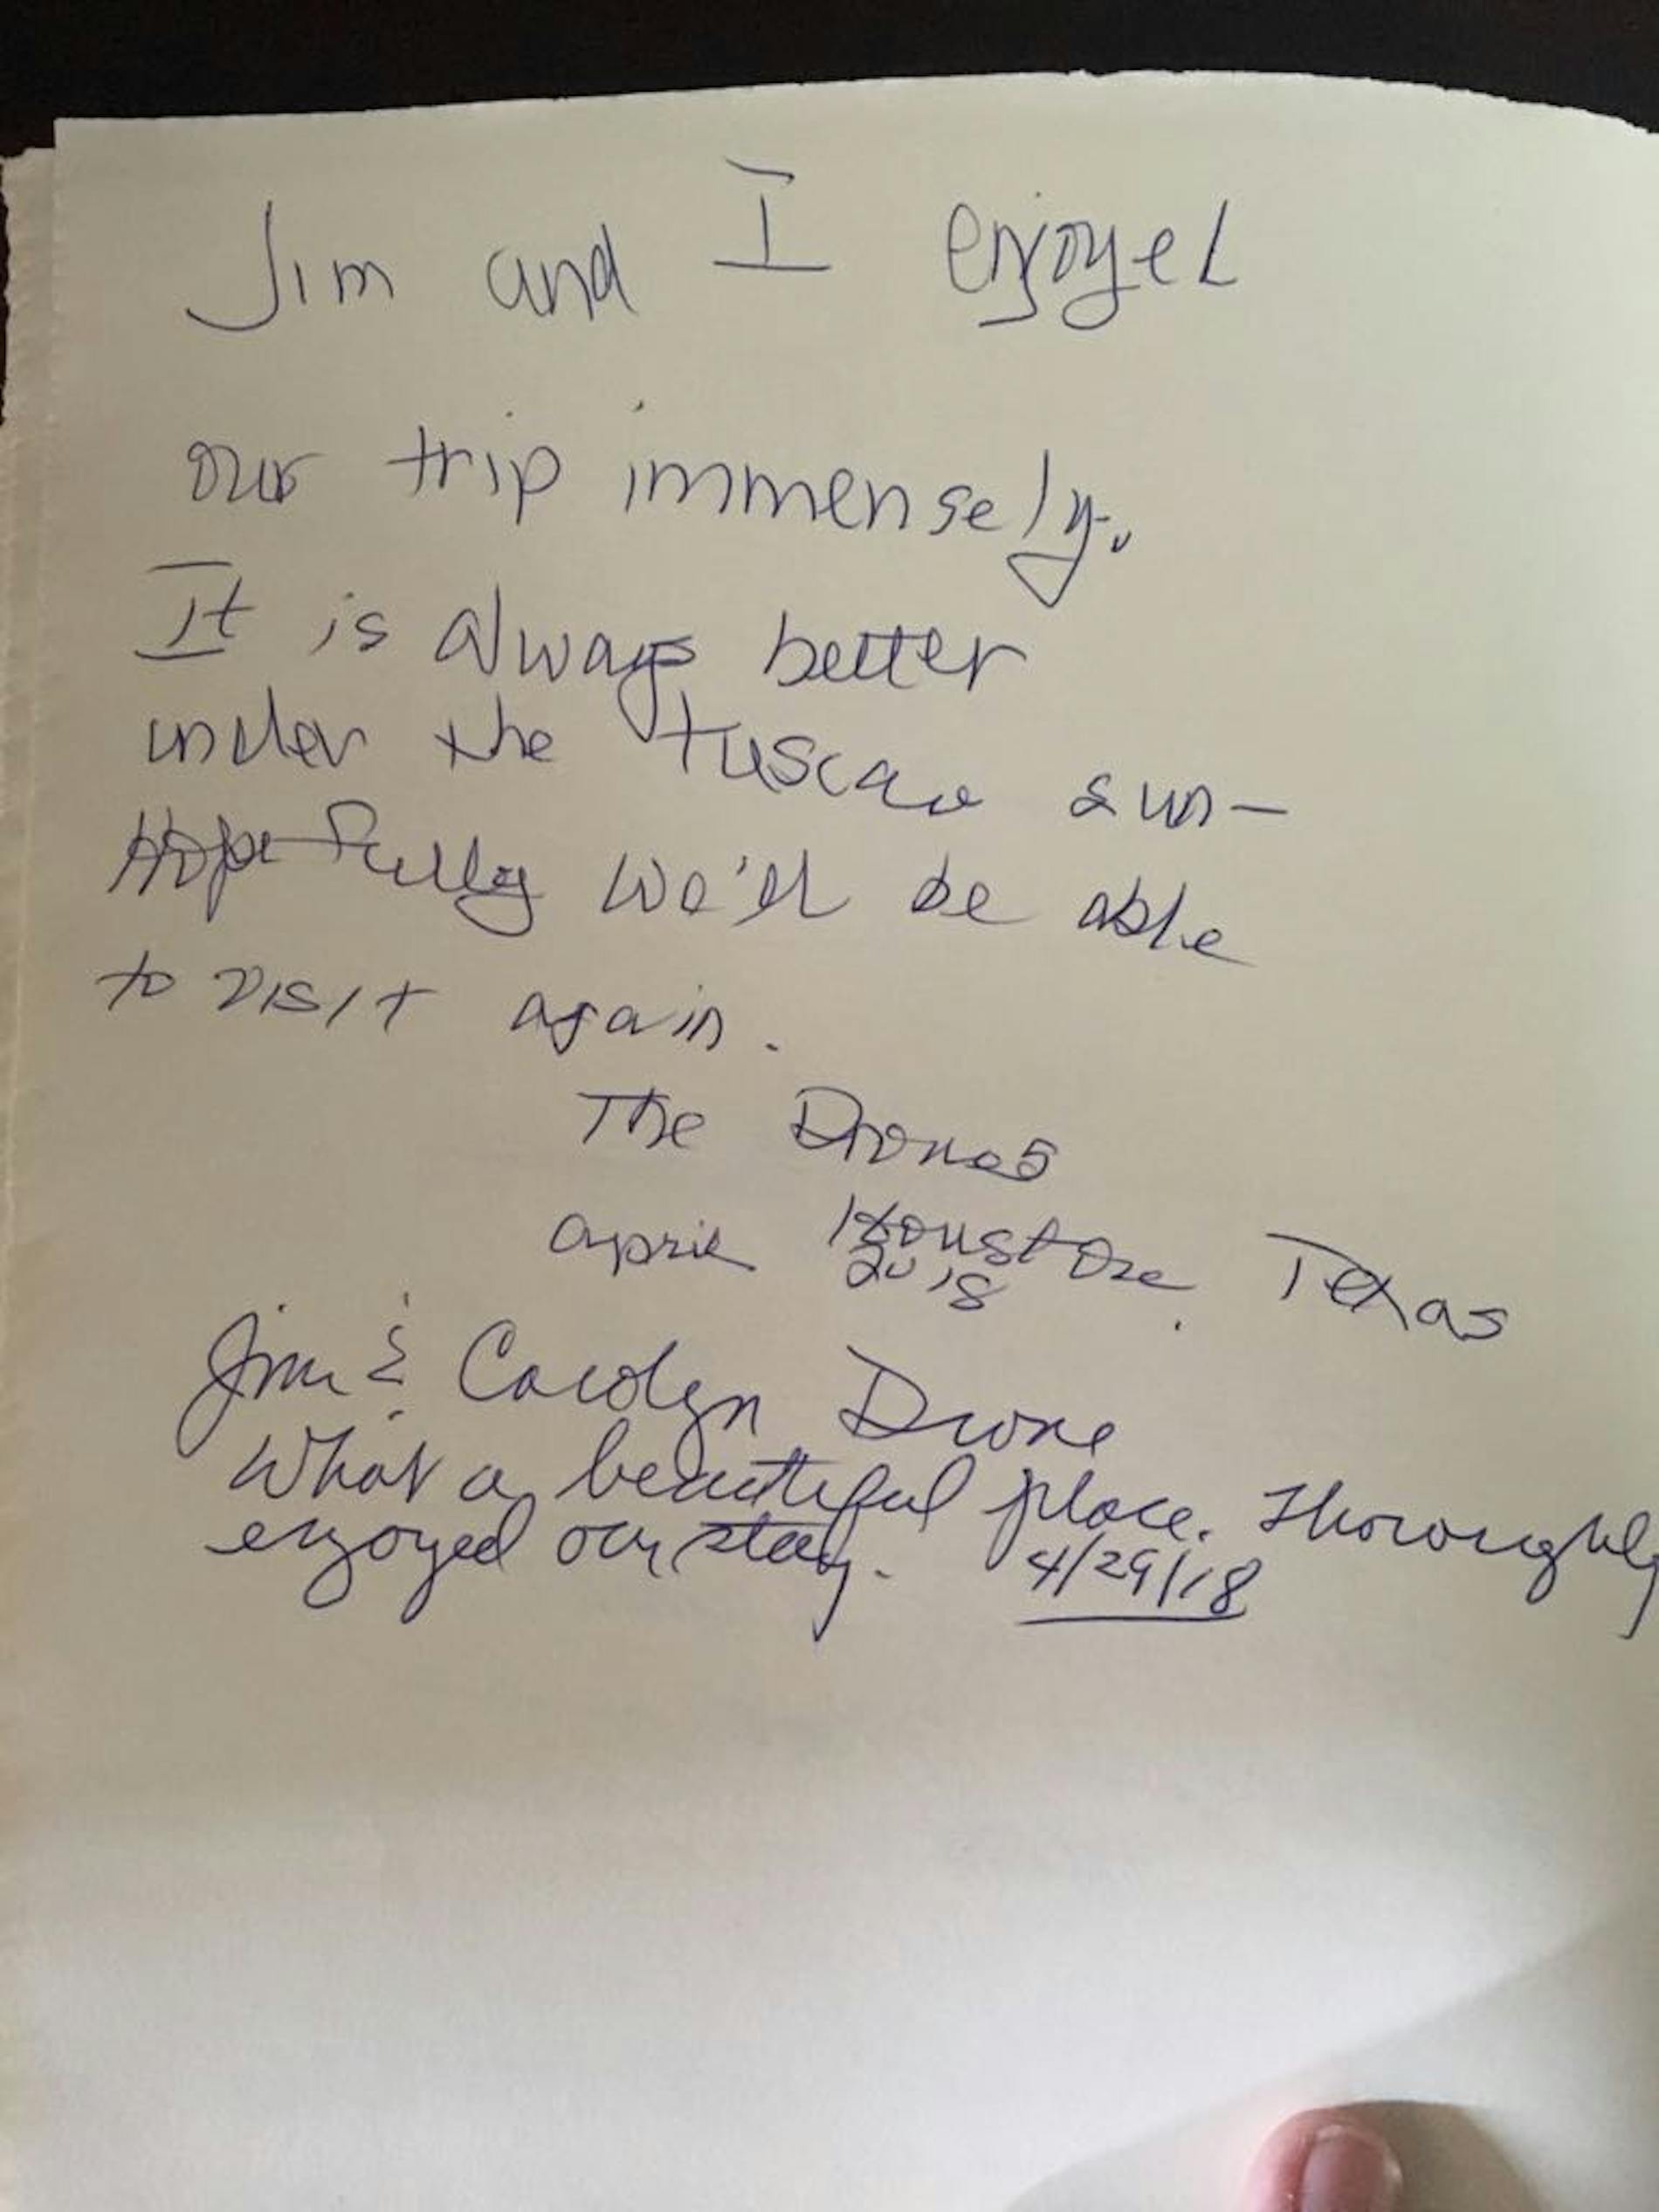 Jim and I enjoyed
our trip immensely.
It is always better
under the tuscan sun-
Hopefully we'll be able
to visit again.
The Drones
april Houston, Texas
2018
Jim & Carolyn Drone
What a beautiful place. Thoroughly
enjoyed our stay. 4/29/18